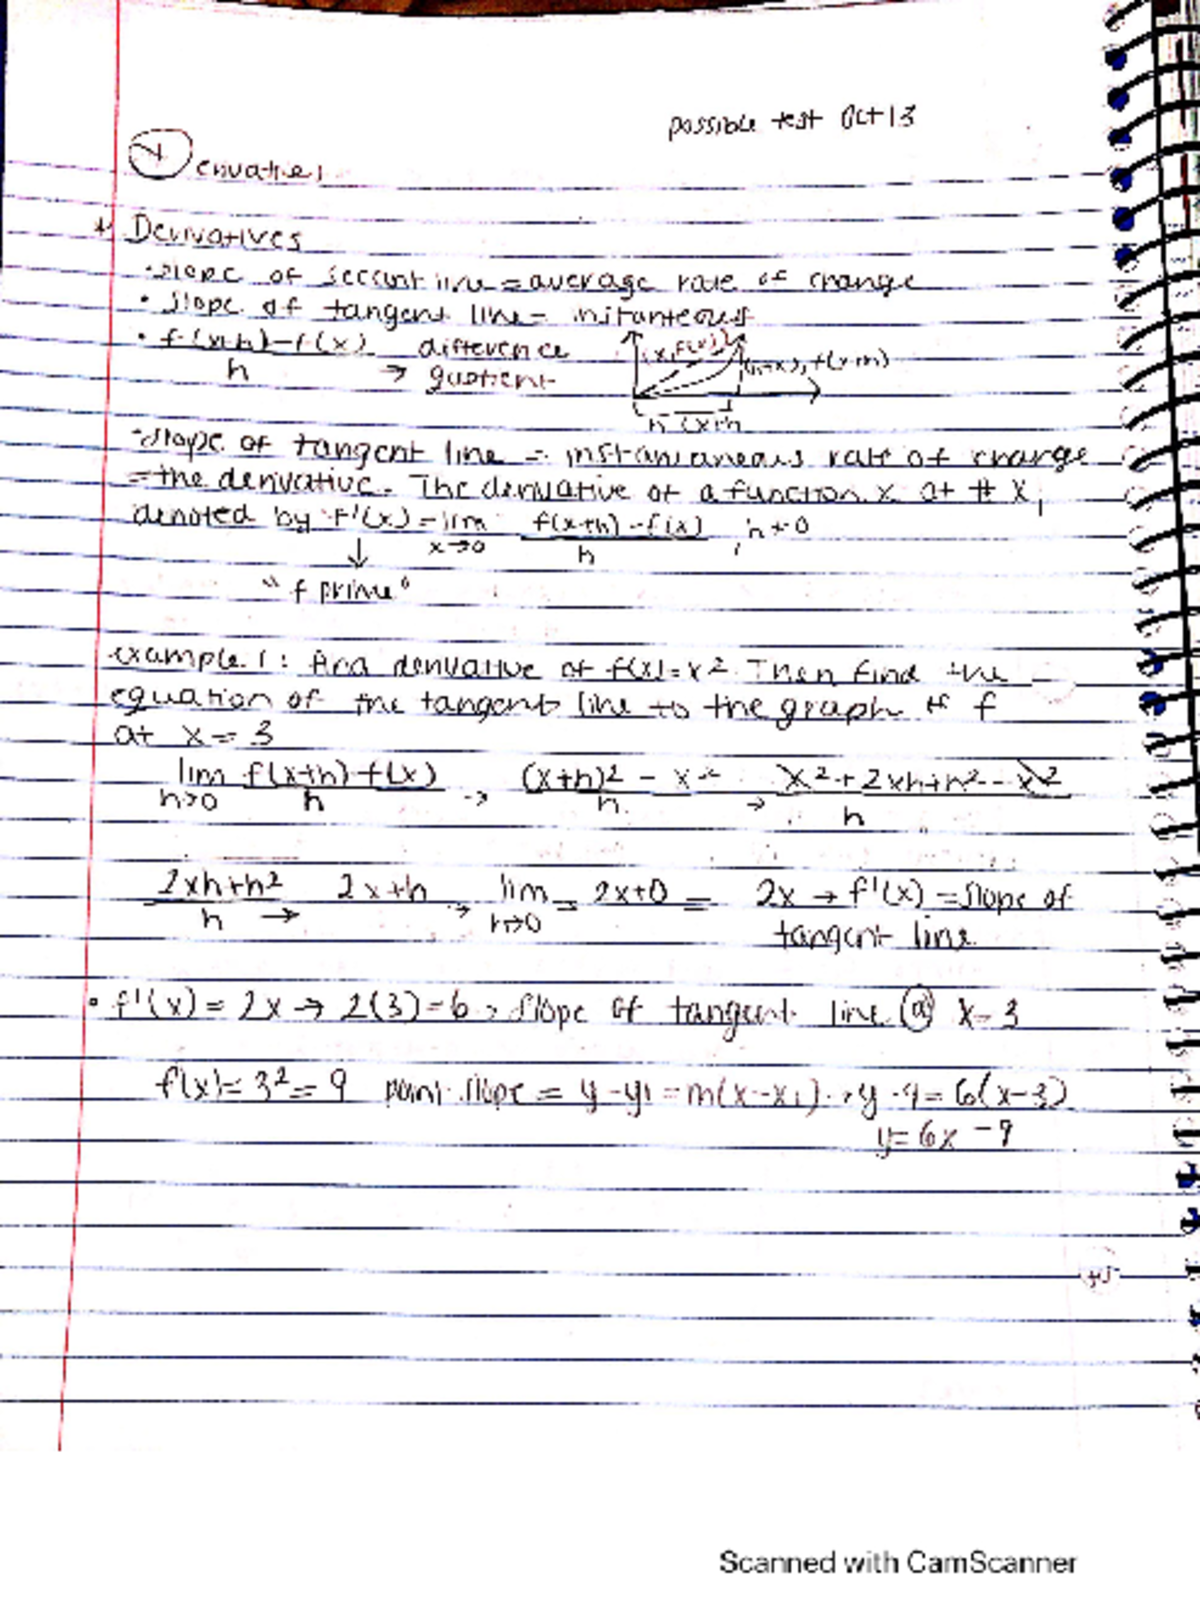 possible test Oct 13
erivatives
* Derivatives
• slope of secant line = average rate of change
• slope of tangent line = instanteous
• f(x+h)-f(x) / h → difference quotient
(x, f(x))
(h+x), f(x+h)
h
x+h
• slope of tangent line = instantaneous rate of change
= the derivative. The derivative of a function x at # x,
denoted by f'(x) = lim x→0 f(x+h)-f(x) / h , h≠0
↓
"f prime"
example 1: find derivative of f(x)=x². Then find the
equation of the tangent line to the graph of f
at x = 3
lim h→0 f(x+h)-f(x) / h → (x+h)² - x² / h → x²+2xh+h²-x² / h
2xh+h² / h → 2x+h → lim h→0 = 2x+0 = 2x → f'(x) = slope of
tangent line
• f'(x) = 2x → 2(3)=6 → slope of tangent line @ x=3
f(x)=3²=9 point slope = y-y₁=m(x-x₁) → y-9=6(x-3)
y=6x-9
Scanned with CamScanner